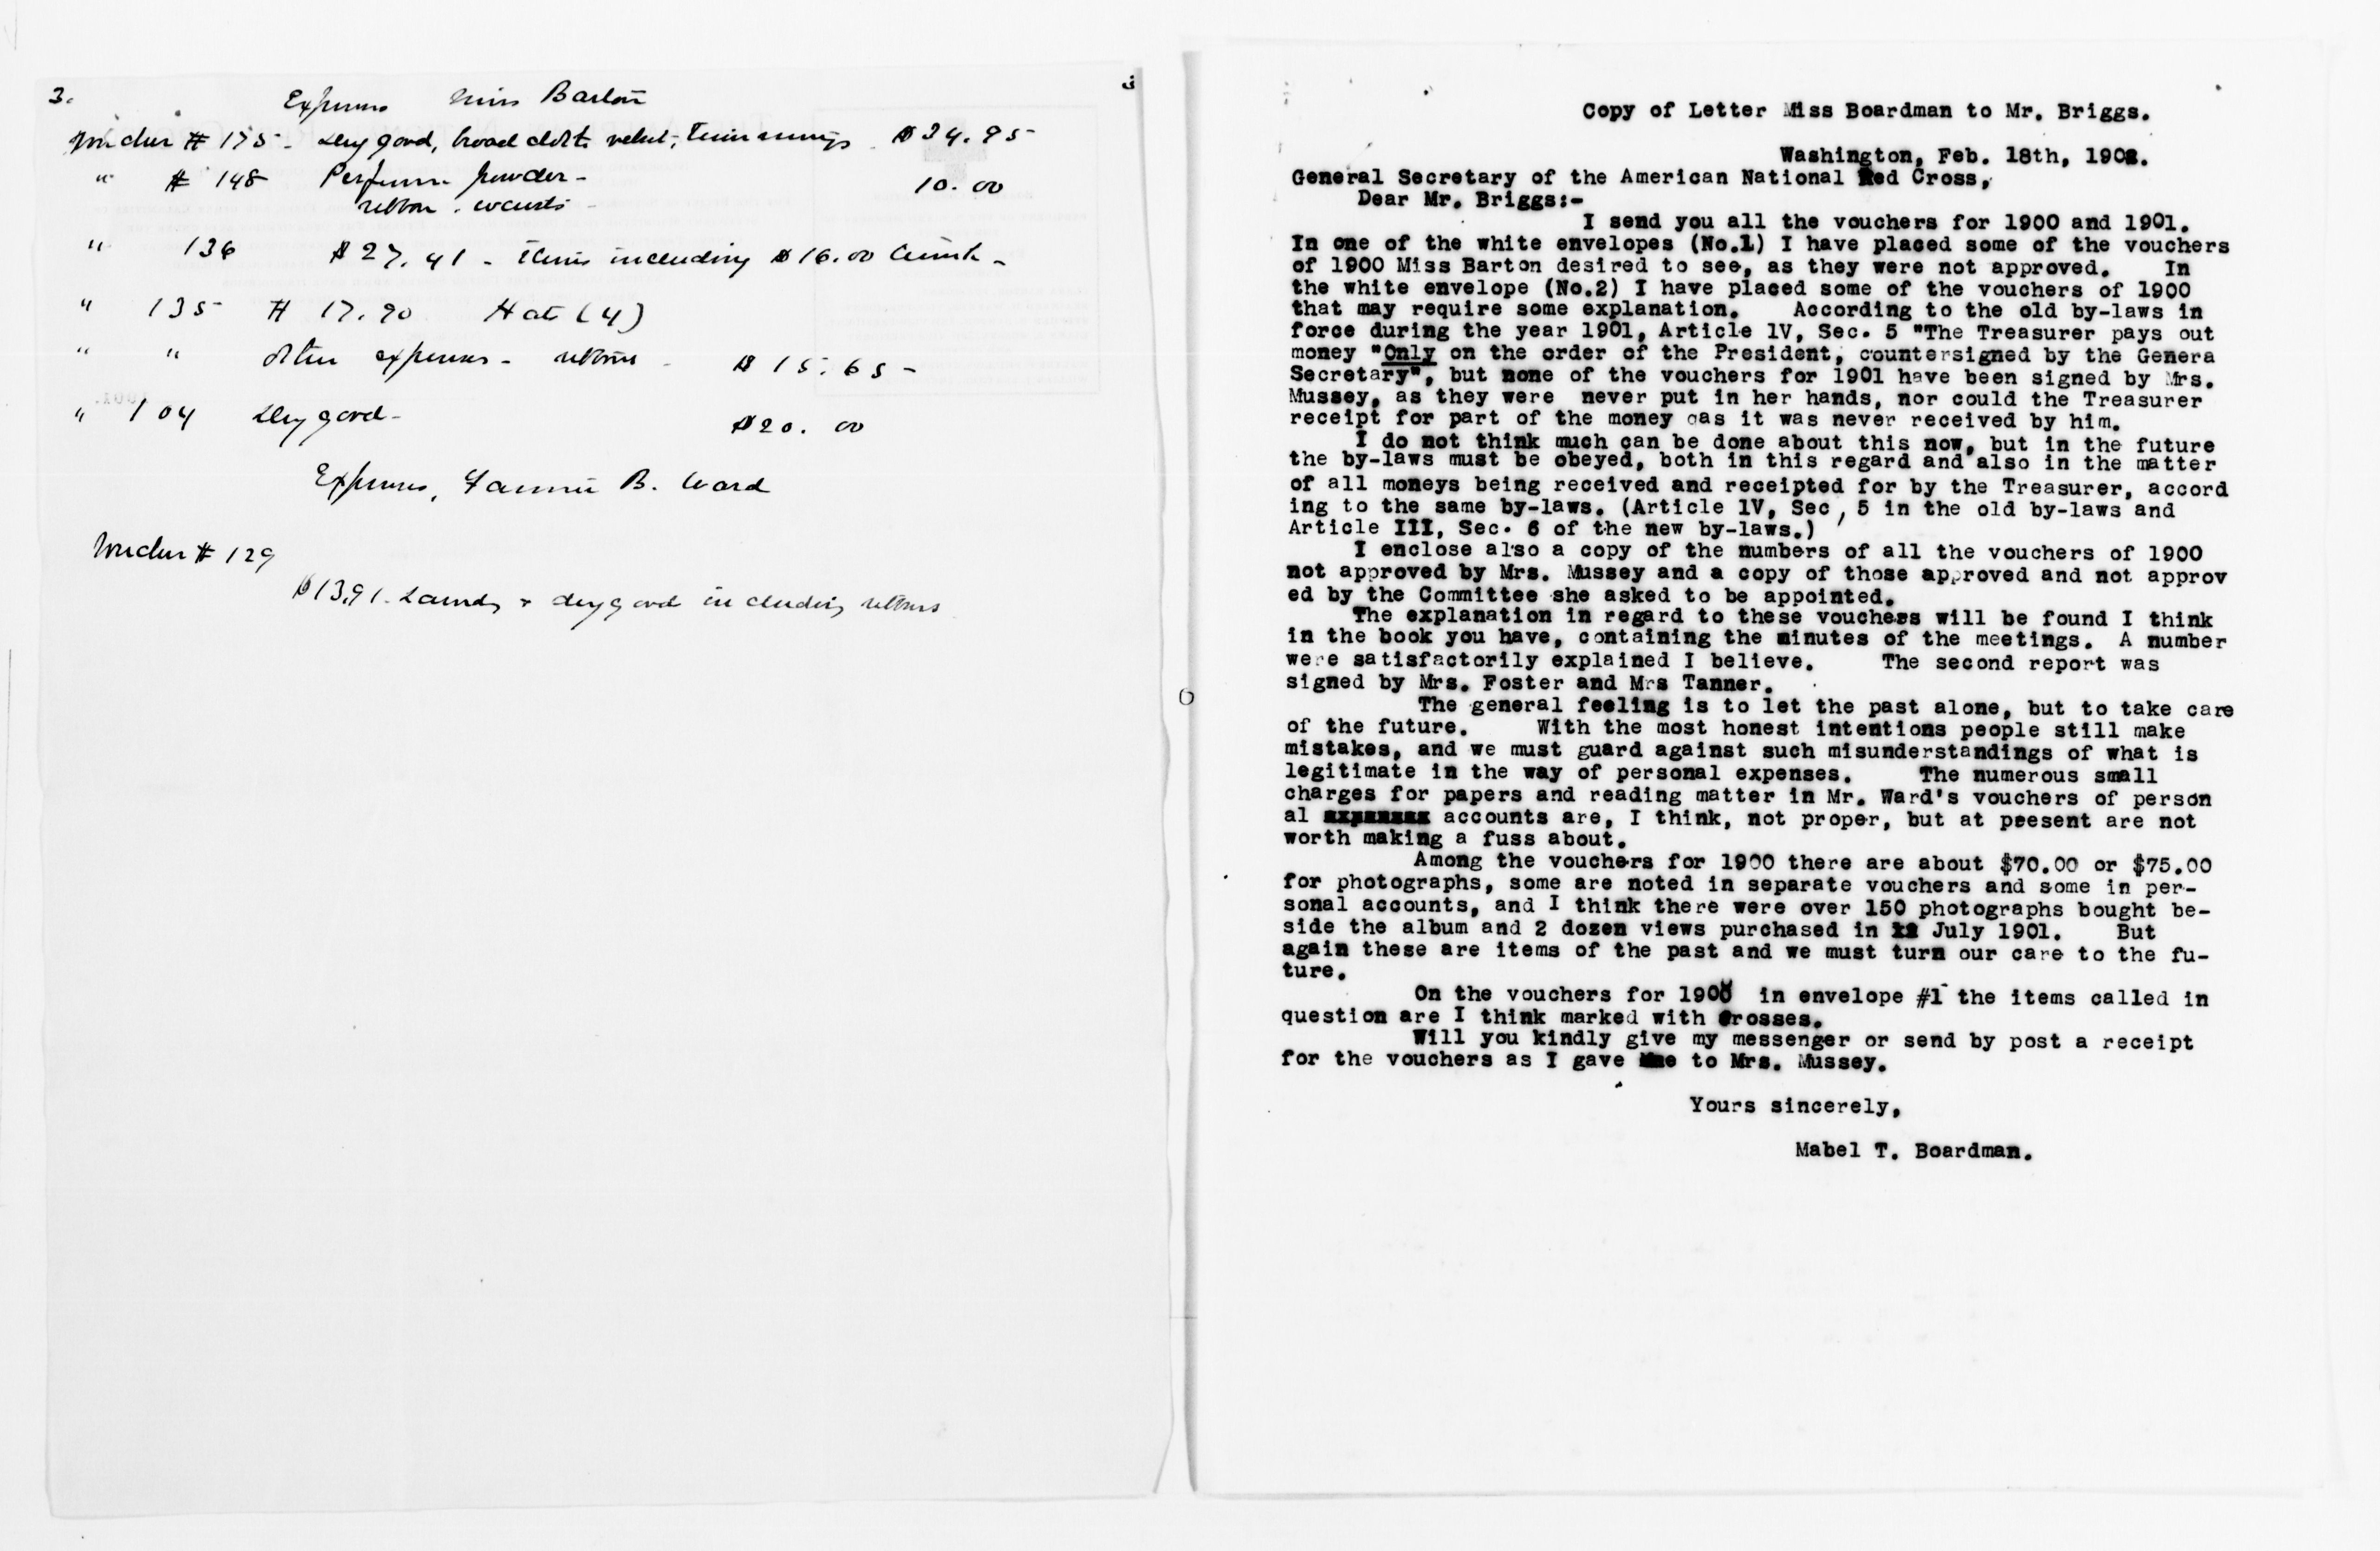 3.
Expenses Miss Barton
Voucher # 175 - Dry good, broad cloth velvet, Trimmings - $34.95
" # 148 Perfume powder - 10.00
ribbon
" 136 $27.41 - Items including $16.00
" 135 # 17.90 Hat (4)
" " other expenses - ribbons - $15.65 -
" 104 Dry good - $20.00
Expenses, Fannie B. Ward
Voucher # 129
$13.91. Laundry & dry good including ribbons
Copy of Letter Miss Boardman to Mr. Briggs.
Washington, Feb. 18th, 1902.
General Secretary of the American National Red Cross,
Dear Mr. Briggs:-
I send you all the vouchers for 1900 and 1901.
In one of the white envelopes (No.1) I have placed some of the vouchers
of 1900 Miss Barton desired to see, as they were not approved. In
the white envelope (No.2) I have placed some of the vouchers of 1900
that may require some explanation. According to the old by-laws in
force during the year 1901, Article 1V, Sec. 5 "The Treasurer pays out
money "Only on the order of the President, countersigned by the Genera
Secretary", but none of the vouchers for 1901 have been signed by Mrs.
Mussey, as they were never put in her hands, nor could the Treasurer
receipt for part of the money cas it was never received by him.
I do not think much can be done about this now, but in the future
the by-laws must be obeyed, both in this regard and also in the matter
of all moneys being received and receipted for by the Treasurer, accord
ing to the same by-laws. (Article 1V, Sec, 5 in the old by-laws and
Article III, Sec. 6 of the new by-laws.)
I enclose also a copy of the numbers of all the vouchers of 1900
not approved by Mrs. Mussey and a copy of those approved and not approv
ed by the Committee she asked to be appointed.
The explanation in regard to these vouchers will be found I think
in the book you have, containing the minutes of the meetings. A number
were satisfactorily explained I believe. The second report was
signed by Mrs. Foster and Mrs Tanner.
The general feeling is to let the past alone, but to take care
of the future. With the most honest intentions people still make
mistakes, and we must guard against such misunderstandings of what is
legitimate in the way of personal expenses. The numerous small
charges for papers and reading matter in Mr. Ward's vouchers of person
al accounts are, I think, not proper, but at present are not
worth making a fuss about.
Among the vouchers for 1900 there are about $70.00 or $75.00
for photographs, some are noted in separate vouchers and some in per-
sonal accounts, and I think there were over 150 photographs bought be-
side the album and 2 dozen views purchased in July 1901. But
again these are items of the past and we must turn our care to the fu-
ture.
On the vouchers for 1900 in envelope #1 the items called in
question are I think marked with crosses.
Will you kindly give my messenger or send by post a receipt
for the vouchers as I gave to Mrs. Mussey.
Yours sincerely,
Mabel T. Boardman.